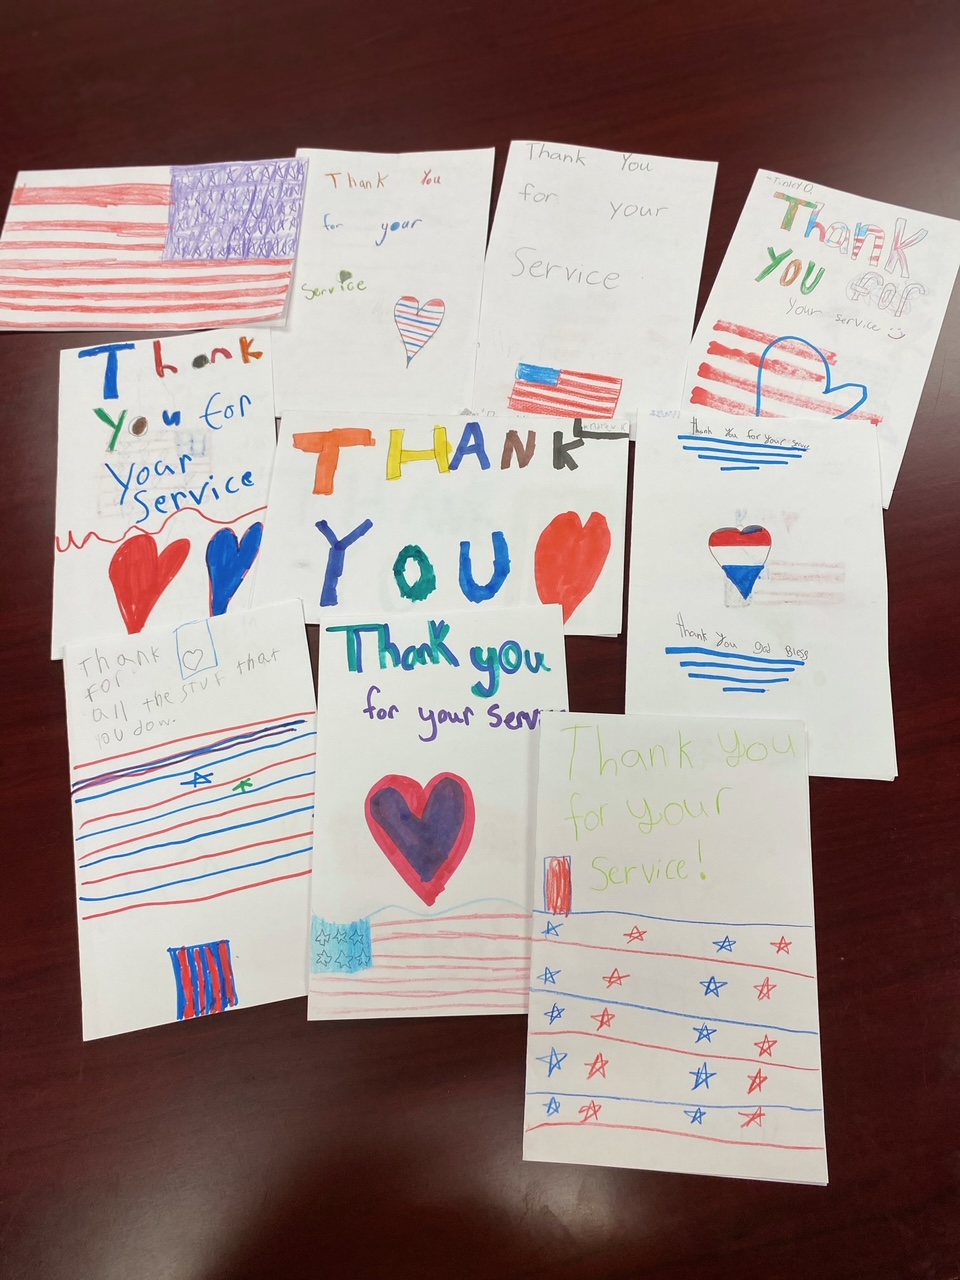 Thank You
for your
Service
Thank You
for your
Service
Thank
You for
your service
Thank
You for
Your
Service
THANK
YOU
Thank You for your service
Thank You god Bless
Thank
For
all the stuf that
you don.
Thank you
for your serv
Thank You
for your
Service!